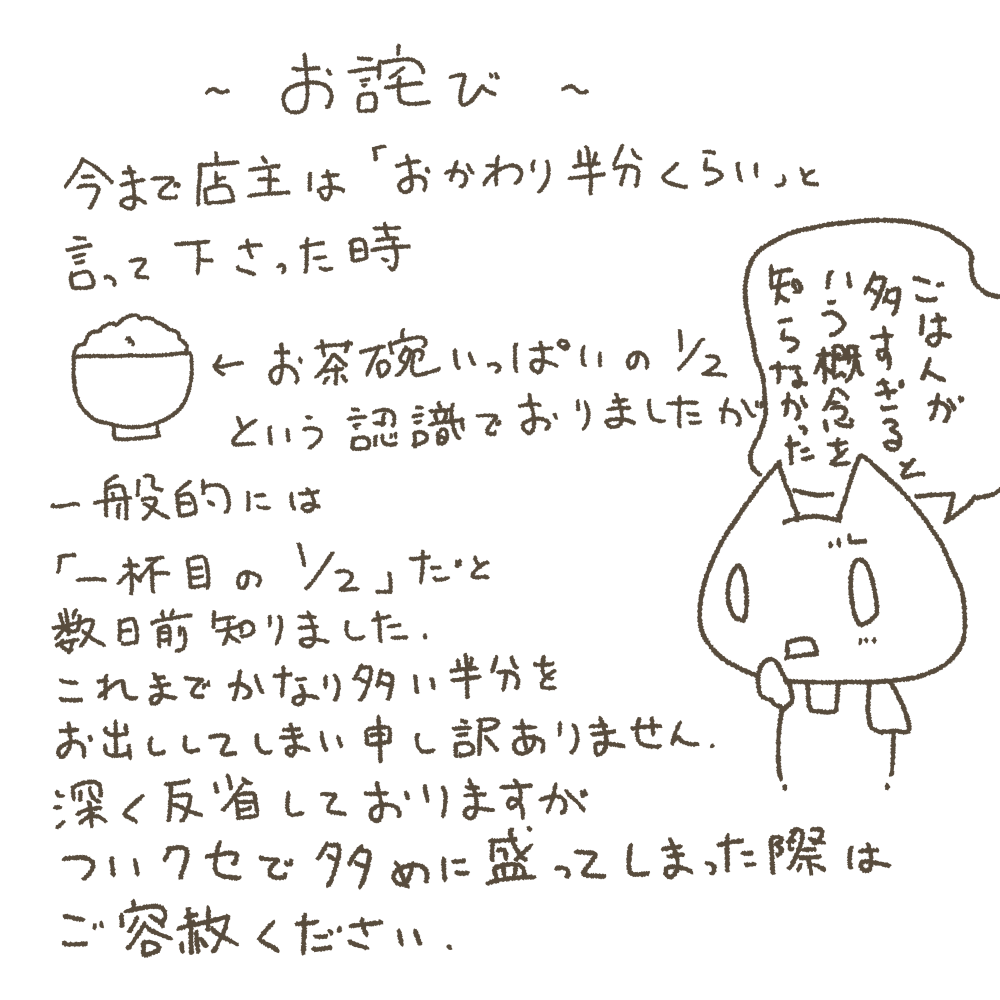 ～ お詫び ～
今まで店主は「おかわり半分くらい」と
言って下さった時
← お茶碗いっぱいの 1/2
という認識でおりましたが
一般的には
「一杯目の 1/2」だと
数日前知りました.
これまでかなり多い半分を
お出ししてしまい申し訳ありません.
深く反省しておりますが
ついクセで多めに盛ってしまった際は
ご容赦ください.
ごはんが
多すぎると
いう概念を
知らなかった